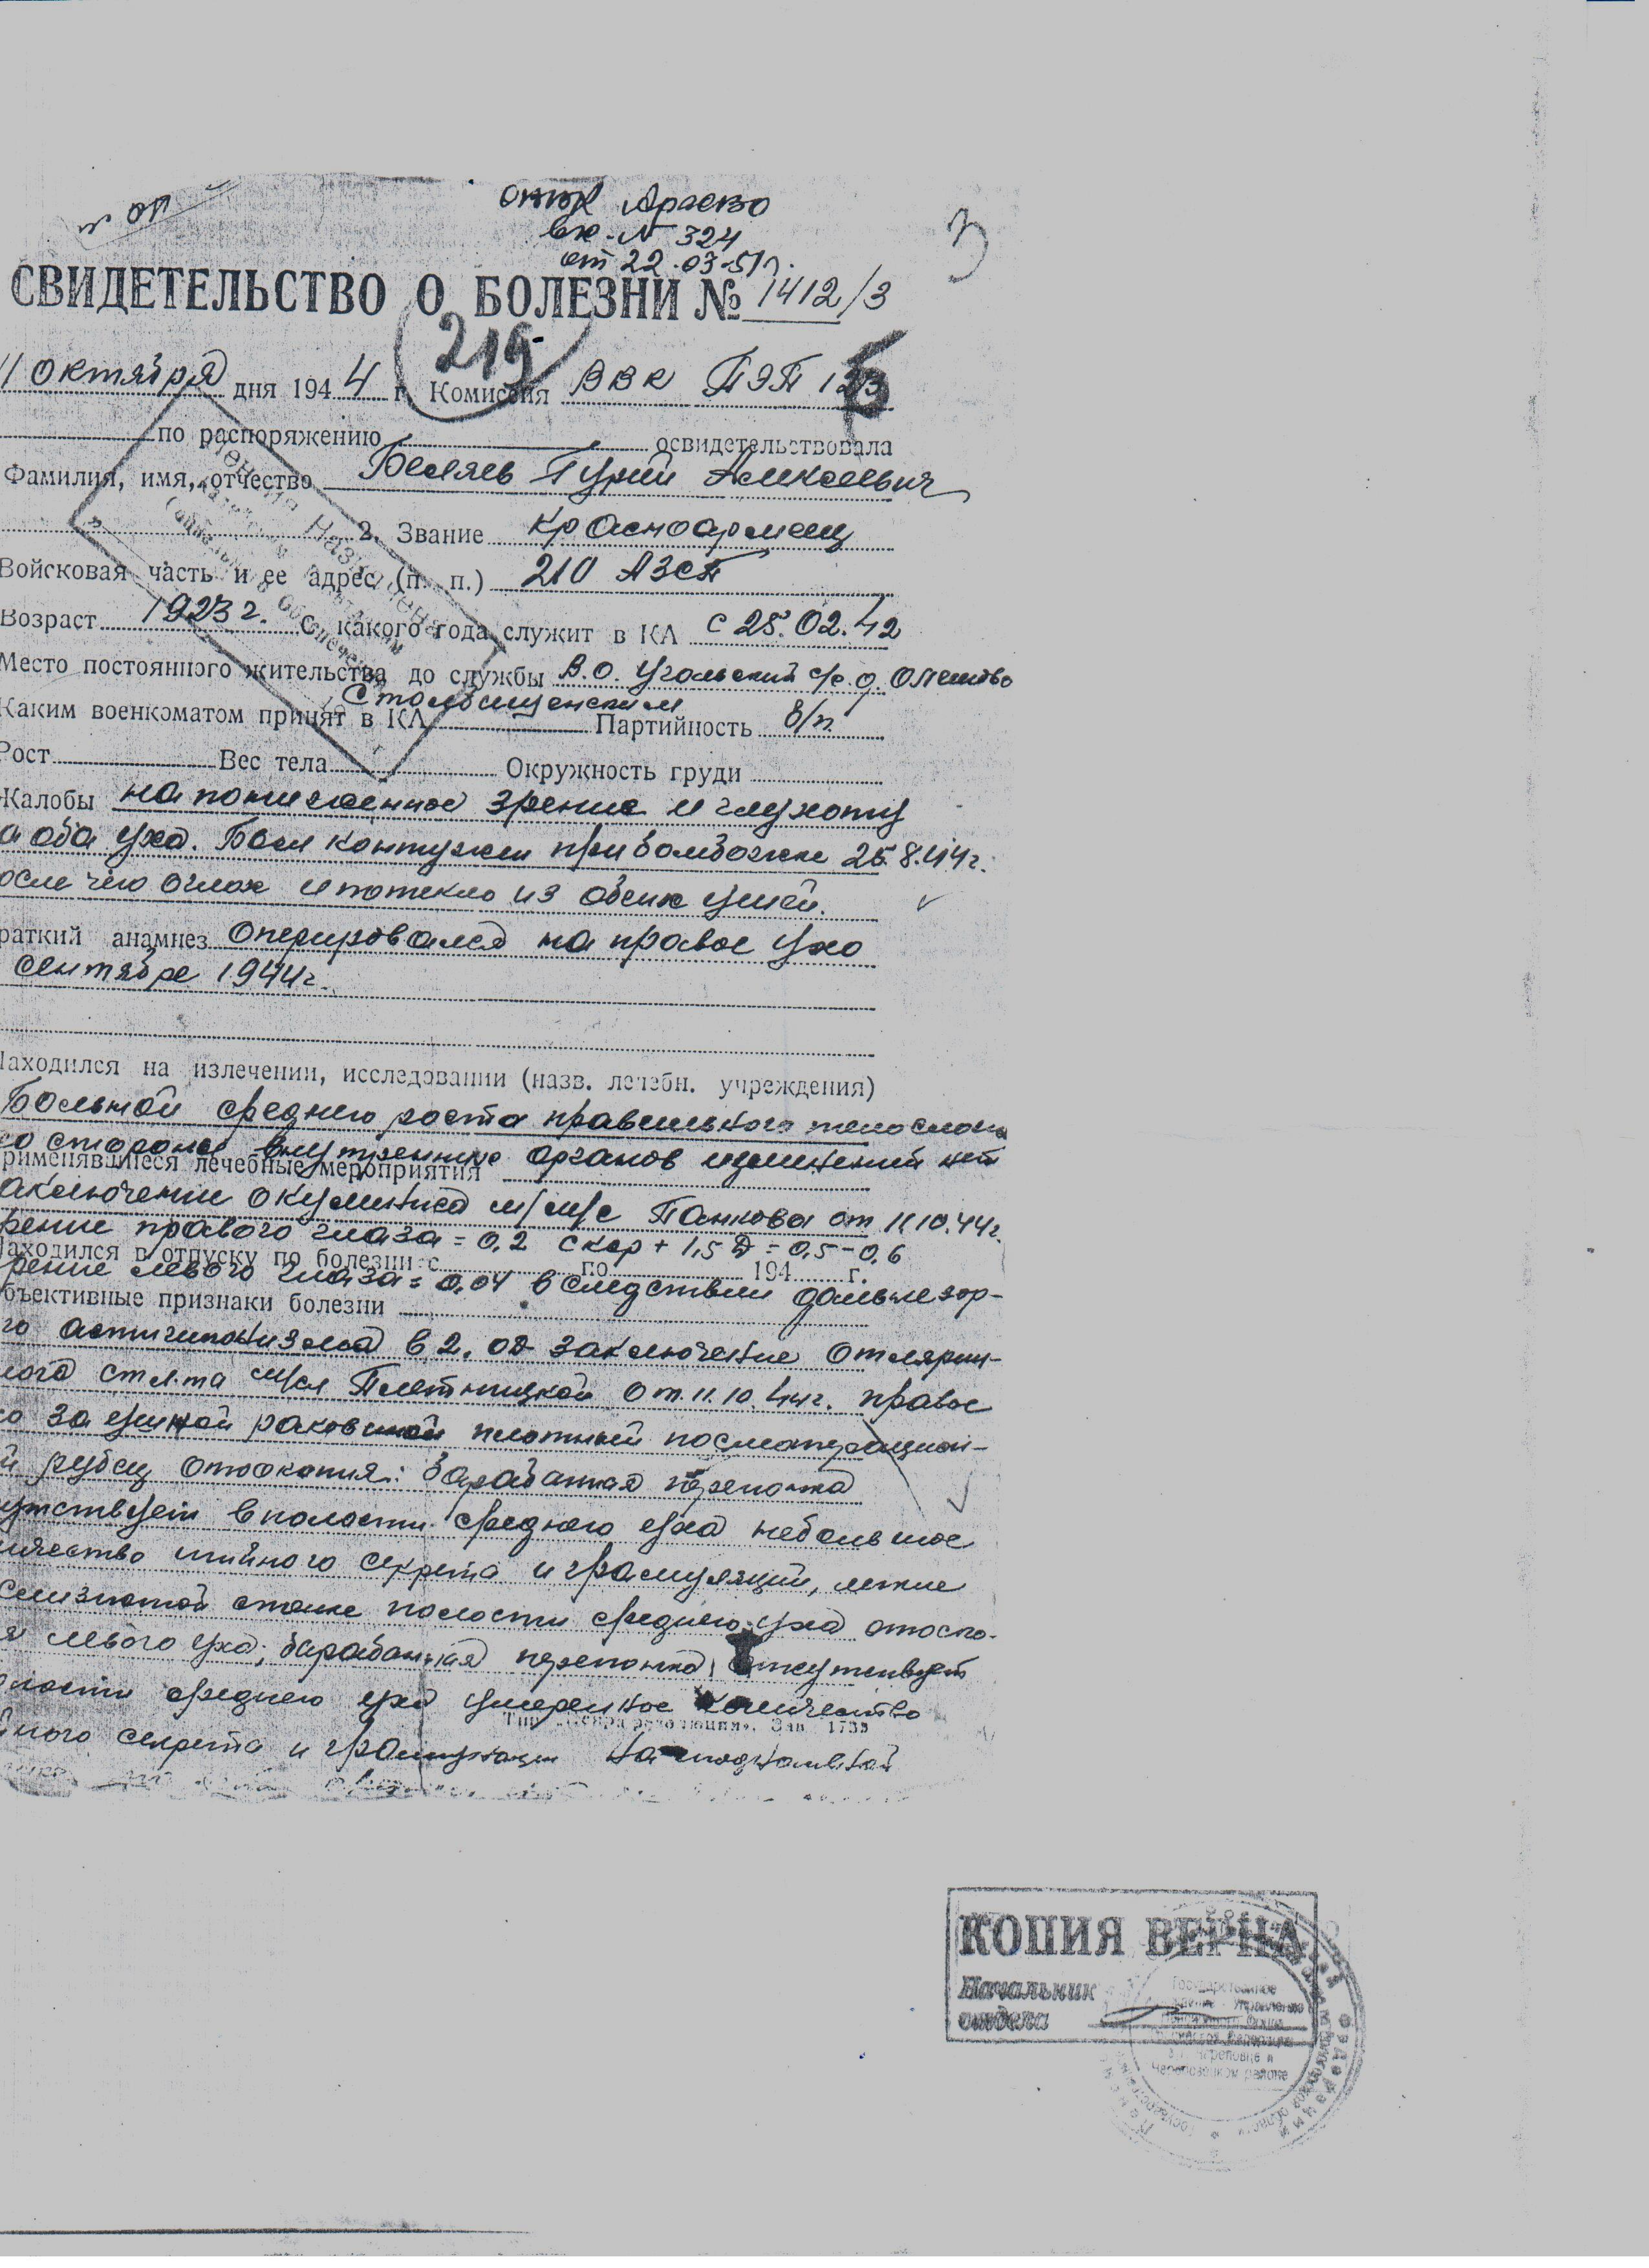 вх. N 324
от 22.03.51г.
3
СВИДЕТЕЛЬСТВО О БОЛЕЗНИ № 1412/3
219
11 октября дня 1944 г. Комиссия ВВК ПЭП
по распоряжению освидетельствовала
Фамилия, имя, отчество Беляев Гурий Алексеевич
2. Звание красноармеец
Войсковая часть и ее адрес (п. п.) 210 АЗСП
Возраст 1923 г. С какого года служит в КА с 28.02.42
Место постоянного жительства до службы В.О. Угольский с/с д.
Каким военкоматом принят в КА Партийность б/п.
Рост Вес тела Окружность груди
Жалобы на пониженное зрение и глухоту
а оба уха. Был контужен при бомбежке 25.8.44г.
осле чего оглох и потекло из обеих ушей.
раткий анамнез Оперировался на правое ухо
сентябре 1944г.
Находился на излечении, исследовании (назв. лечебн. учреждения)
Больной среднего роста правильного телослож
со стороны внутренних органов изменений нет
рименявшиеся лечебные мероприятия
аключение окулиста м/м/с Панкова от 11.10.44г.
рение правого глаза = 0,2 с кор + 1,5 Д = 0,5-0,6
Находился в отпуску по болезни с по 194 г.
рение левого глаза = 0,04 вследствии дальнезор-
бъективные признаки болезни
го астигматизма в 2,0Д заключение отоларин-
от 11.10.44г. правое
хо за ушной раковиной плотный послеоперацион-
й рубец отоскопия: барабанная перепонка
утствует в полости среднего уха небольшое
ичество гнойного секрета и грануляции,
полости среднего уха отоско-
я левого уха; барабанная перепонка отсутствует
лости среднего уха умеренное количество
Зак. 1733
йного секрета и грануляции на
КОПИЯ ВЕРНА
Начальник
отдела
Государственное
Управление
Пенсионного фонда
Российской Федерации
в г. Череповце и
Череповецком районе